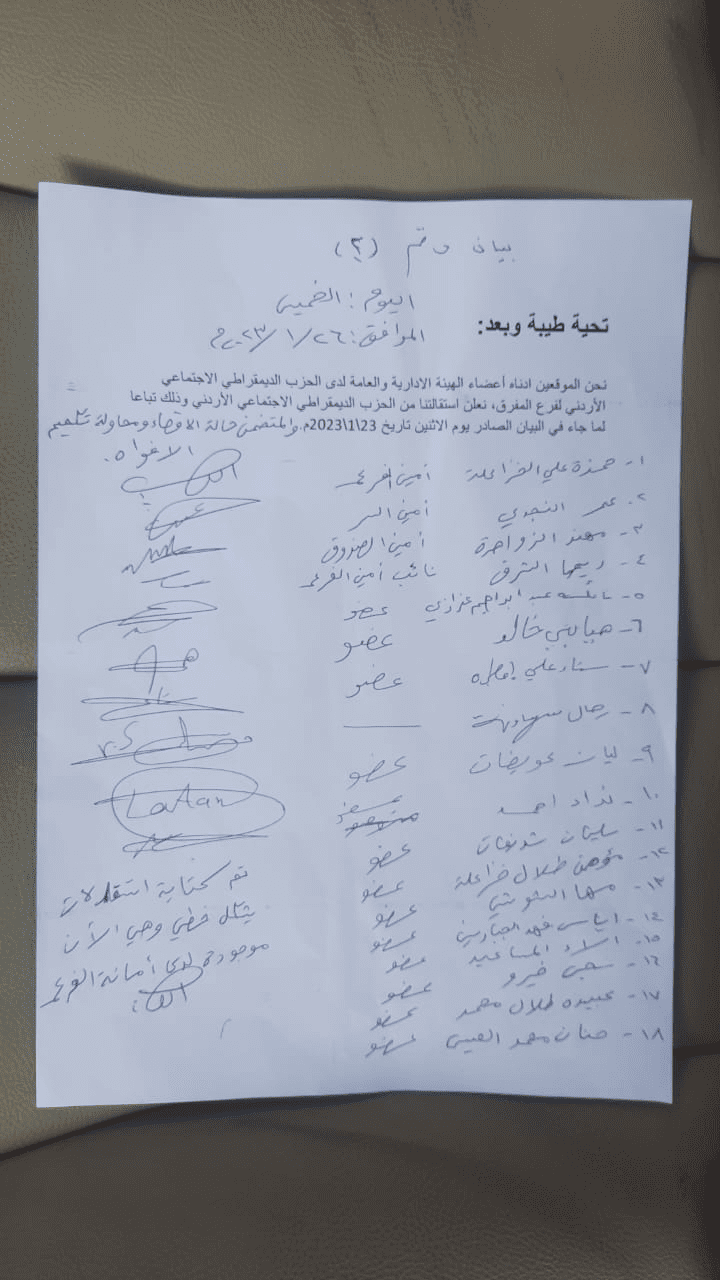 بيان رقم (٢)
اليوم : الخميس
تحية طيبة وبعد:
الموافق : ٢٦ / ١ / ٢٠٢٣م
نحن الموقعين ادناه أعضاء الهيئة الادارية والعامة لدى الحزب الديمقراطي الاجتماعي
الأردني لفرع المفرق، نعلن استقالتنا من الحزب الديمقراطي الاجتماعي الأردني وذلك تباعا
لما جاء في البيان الصادر يوم الاثنين تاريخ 23\1\2023م. والمتضمن حالة الاقصاء ومحاولة تكميم
الافواه.
١- حمزة علي الخزاعلة أمين الفرع
٢- عمر النجدي أمين السر
٣- مهند الزواهرة أمين الصندوق
٤- ريما الشرق نائب أمين الفرع
٥- عبد ابراهيم عضو
٦- هيا بني خالد عضو
٧- علي عضو
٨-
٩- ليان عويضات عضو
١٠- نداء احمد عضو
١١- سليمان عضو
١٢- طلال خزاعلة عضو
١٣- مها عضو
١٤- فهد عضو
١٥- اسلاء المساعيد عضو
١٦- عضو
١٧- عبيده طلال محمد عضو
١٨- حنان محمد العيسى عضو
LaAan
تم كتابة استقالات
بشكل خطي وهي الأن
موجودة لدى أمانة الفرع